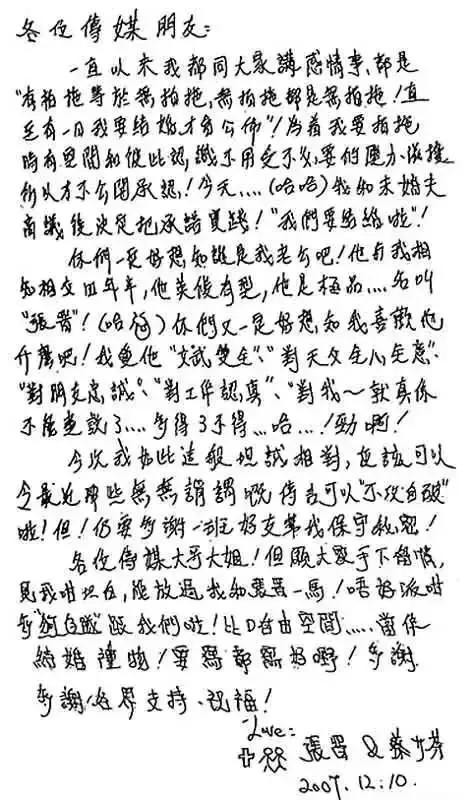 各位傳媒朋友:
一直以來我都同大家講感情事,都是
"有拍拖等於無拍拖,無拍拖都是無拍拖!直
至有一日我要結婚,才會公佈"!為着我要拍拖
時有空間和彼此認識不用受不必要的壓力困擾
所以才不公開承認!今天....(哈哈)我和未婚夫
商議後決定把承諾實踐!"我們要結婚啦"!
你們一定好想知誰是我老公吧!他與我相
知相交四年半,他英俊有型,他是極品....名叫
"張晉"!(哈哈)你們又一定好想知我喜歡他
什麼吧!我愛他"文武雙全"、"對天父全心全意"、
"對朋友忠誠"、"對工作認真"、"對我~就真係
不能盡數了....多得3不得...哈...!勁啊!
今次我如此這般坦誠相對,應該可以
令最近那些無無謂謂嘅傳言可以"不攻自破"
啦!但!仍要多謝一班好友幫我保守秘密!
各位傳媒大哥大姐!但願大家手下留情,
見我咁坦白,能放過我和張晉一馬!唔好派咁
多"狗仔隊"跟我們啦!比D自由空間.....當作
結婚禮物!要寫都寫好嘢!多謝
多謝各界支持、祝福!
Love:
張晉 & 蔡少芬
2007.12.10.